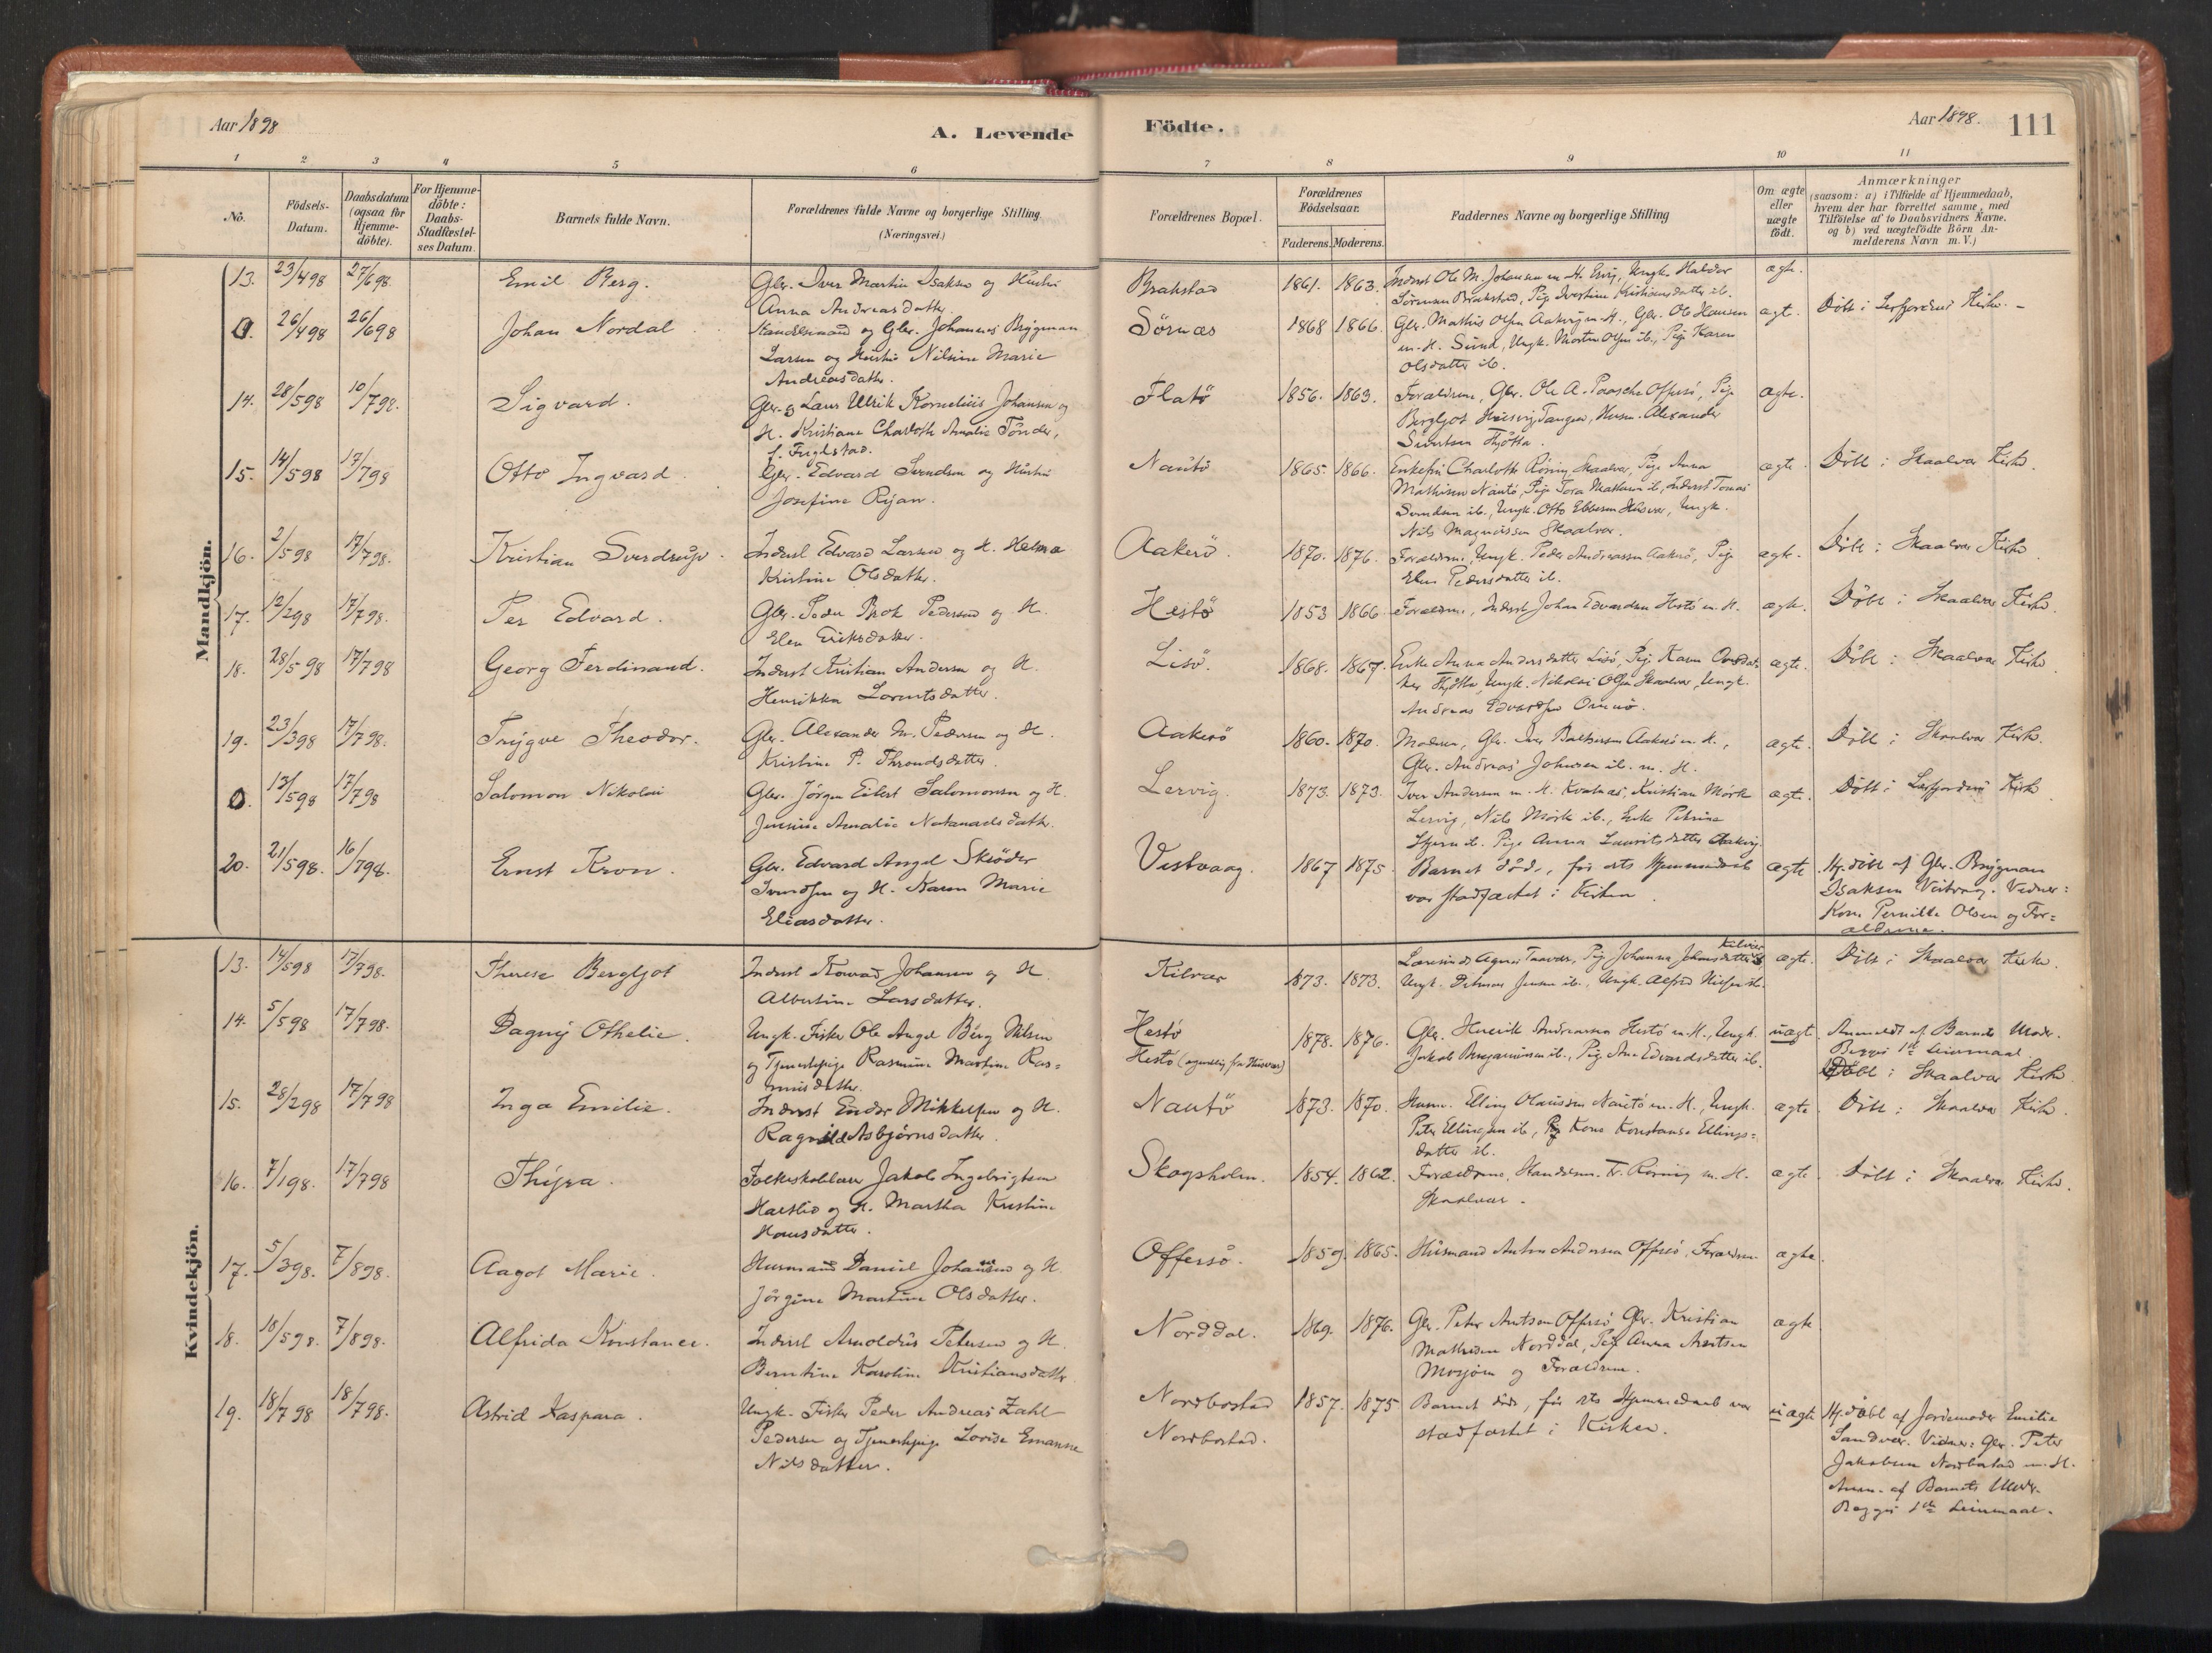 Aar 1898
A. Levende
Födte.
Aar 1898.
111
1 2 3 4 5 6 7 8 9 10 11
No.
Födsels-
Datum.
Daabsdatum
(ogsaa for
Hjemme-
döbte).
For Hjemme-
döbte:
Daabs-
Stadfæstel-
ses Datum.
Barnets fulde Navn.
Forældrenes fulde Navne og borgerlige Stilling.
(Næringsvei.)
Forældrenes Bopæl.
Forældrenes
Födselsaar.
Faderens. Moderens.
Faddernes Navne og borgerlige Stilling
Om ægte
eller
uægte
födt.
Anmærkninger
(saasom: a) i Tilfælde af Hjemmedaab,
hvem der har forrettet samme, med
Tilföielse af to Daabsvidners Navne.
og b) ved uægtefödte Börn An-
melderens Navn m. V.)
Mandkjön.
13. 23/4 98 27/6 98. Emil Berg. Gbr. Iver Martin Isaksen og Hustru
Anna Andreasdatter.
Brakstad 1861. 1863. Inderst Ole M. Johansen m. H. Ungk. Haldor
Sörensen Brakstad, Pige Kristiansdatter ib.
ægte.
0. 26/4 98 26/6 98 Johan Nordal. Handelsmand og Gbr. Johannes Brygman
Larsen og Hustru Nilsine Marie
Andreasdatter.
Sörnæs 1868 1866. Gbr. Mathis Olsen m. H., Gbr. Ole Hansen
m. H. Sund, Ungk. Morten Olsen ib., Pige Karen
Olsdatter ib.
ægt. Döbt i Leirfjordens Kirke.
14. 28/5 98 10/7 98. Sigvard. Gbr. Laur Ulrik Kornelius Johansen og
H. Kristiane Charlotte Amalie Tönder,
f. Fuglstad.
Flatö 1856. 1863. Forældrene, Gbr. Ole A. Paasche Offersö, Pige
Bergljot Tangen, Husm. Alexander
Sivertsen Tjötta.
ægte.
15. 14/5 98 17/7 98 Otto Ingvard. Gbr. Edvard Svendsen og Hustru
Josefine Ryan.
Nautö 1865. 1866. Enkefru Charlotte Röring Skaalvær, Pige Anna
Mathisen Nautö, Pige Tora Mathisen ib., Inderst Tomas
Svendsen ib., Ungk. Otto Ebbesen Husvær, Ungk.
Nils Magnussen Skaalvær.
ægte. Döbt i Skaalvær Kirke.
16. 2/5 98 17/7 98. Kristian Sverdrup. Inderst Edvard Larsen og H. Helma
Kristine Olsdatter.
Aakerö. 1870. 1876. Forældrene, Ungk. Peder Andreassen Aakerö, Pige
Elen Pedersdatter ib.
ægte. Döbt i Skaalvær Kirke.
17. 12/2 98 17/7 98. Per Edvard. Gbr. Peder Brok Pedersen og H.
Elen Eriksdatter.
Hestö 1853 1866 Forældrene, Inderst Johan Edvardsen Hestö m. H.
ægte. Döbt i Skaalvær Kirke.
18. 28/5 98 17/7 98 Georg Ferdinand. Inderst Kristian Andersen og H.
Henrikka Lorentsdatter.
Lisö. 1868. 1867. Enke Anna Andersdatter Lisö, Pige Karen
Tjötta, Ungk. Nikolai Olsen Skaalvær, Ungk.
Andreas Edvardsen
ægte. Döbt i Skaalvær Kirke.
19. 23/3 98 17/7 98. Trygve Theodor. Gbr. Alexander M. Pedersen og H.
Kristine P. Throndsdatter.
Aakerö 1860. 1870. Moderen, Gbr. Iver Baltsersen Aakerö m. H.,
Gbr. Andreas Johnsen ib. m. H.
ægte. Döbt i Skaalvær Kirke.
0. 13/5 98 17/7 98 Salomon Nikolai Gbr. Jörgen Eilert Salomonsen og H.
Jensine Amalie Natanaelsdatter.
Lervig. 1873. 1873. Iver Andersen m. H. Kvalnæs, Kristian Mörk
Lervig, Nils Mörk ib., Enke Petrine
ib. Pige Anna Lauritsdatter
ægte. Döbt i Leirfjordens Kirke
20. 21/5 98. 16/7 98. Ernst Kron. Gbr. Edvard Angel Skröder
Svendsen og H. Karen Marie
Eliasdatter.
Vestvaag. 1867 1875. Barnet död, för dets Hjemmedaab
var stadfæstet i Kirken.
ægte Hj.döbt af Gbr. Brygman
Isaksen Vestvaag. Vidner:
Kone Pernille Olsen og For=
ældrene.
Kvindekjön.
13. 14/5 98 17/7 98. Therese Bergljot Inderst Konrad Johansen og H.
Albertine Larsdatter.
Kilvær 1873. 1873. Lærerinde Agnes Pige Johanna Johansdatter Kilvær
Ungk. Ditmar Jensen ib., Ungk. Alfred Nielsen ib.
ægte. Döbt i Skaalvær Kirke.
14. 5/5 98 17/7 98. Dagny Othelie. Ungk. Fisker Ole Angel Berg Nilsen
og Tjenestepige Rasmine Martine Ras=
musdatter.
Hestö
Hestö (egentlig fra Husvær)
1878. 1876. Gbr. Henrik Andreassen Hestö m. H., Ungk.
Jakob Benjaminsen ib., Pige Ane Edvardsdatter ib.
uægt. Anmeldt af Barnets Moder.
Begges 1ste Leiermaal.
Döbt i Skaalvær Kirke.
15. 28/2 98 17/7 98 Inga Emilie. Inderst Endor Mikkelsen og H.
Ragnild Asbjörnsdatter.
Nautö 1873. 1870. Husm. Elling Olaussen Nautö m. H., Ungk.
Peter Ellingsen ib., Kone Konstanse Ellings=
datter ib.
ægte. Döbt i Skaalvær Kirke.
16. 7/1 98. 17/7 98 Thyra. Folkeskolelærer Jakob Ingebrigtsen
Hartlid og H. Martha Kristine
Hansdatter.
Skogsholm. 1854. 1862. Forældrene, Handelsm. Fr. Röring m. H.
Skaalvær.
ægte. Döbt i Skaalvær Kirke.
17. 5/3 98. 7/8 98. Aagot Marie. Husmand Daniel Johansen og H.
Jörgine Martine Olsdatter.
Offersö. 1859. 1865. Husmand Anton Andersen Offersö, Forældrene
ægte.
18. 18/5 98. 7/8 98. Alfrida Konstance. Inderst Arnoldus Petersen og H.
Berntine Karoline Kristiansdatter
Norddal. 1869. 1876. Gbr. Peter Arntsen Offersö Gbr. Kristian
Mathisen Norddal, Pige Anna Arntsen
Mosjöen og Forældrene.
ægte
19. 18/7 98 18/7 98. Astrid Kaspara. Ungk. Fisker Peder Andreas Zahl
Pedersen og Tjenestepige Lovise Emanne
Nilsdatter.
Nordbostad
Nordbostad.
1857. 1875 Barnet död, för dets Hjemmedaab var
stadfæstet i Kirken.
uægte Hj.döbt af Jordemoder Emilie
Sandvær. Vidner: Gbr. Peter
Jakobsen Nordbostad m. H.
Anm. af Barnets Moder.
Begges 1ste Leiermaal.